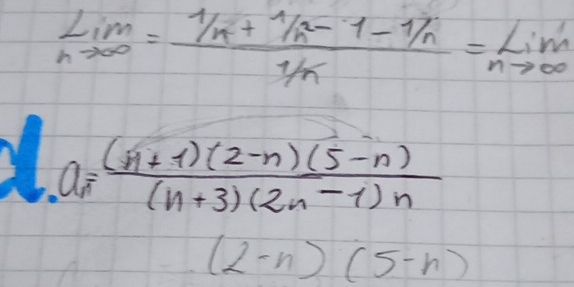 Lim n→∞ = (1/n + 1/n² - 1 - 1/n) / (1/n) = Lim n→∞
d. aₙ = ((n+1)(2-n)(5-n)) / ((n+3)(2n-1)n)
(2-n) (5-n)